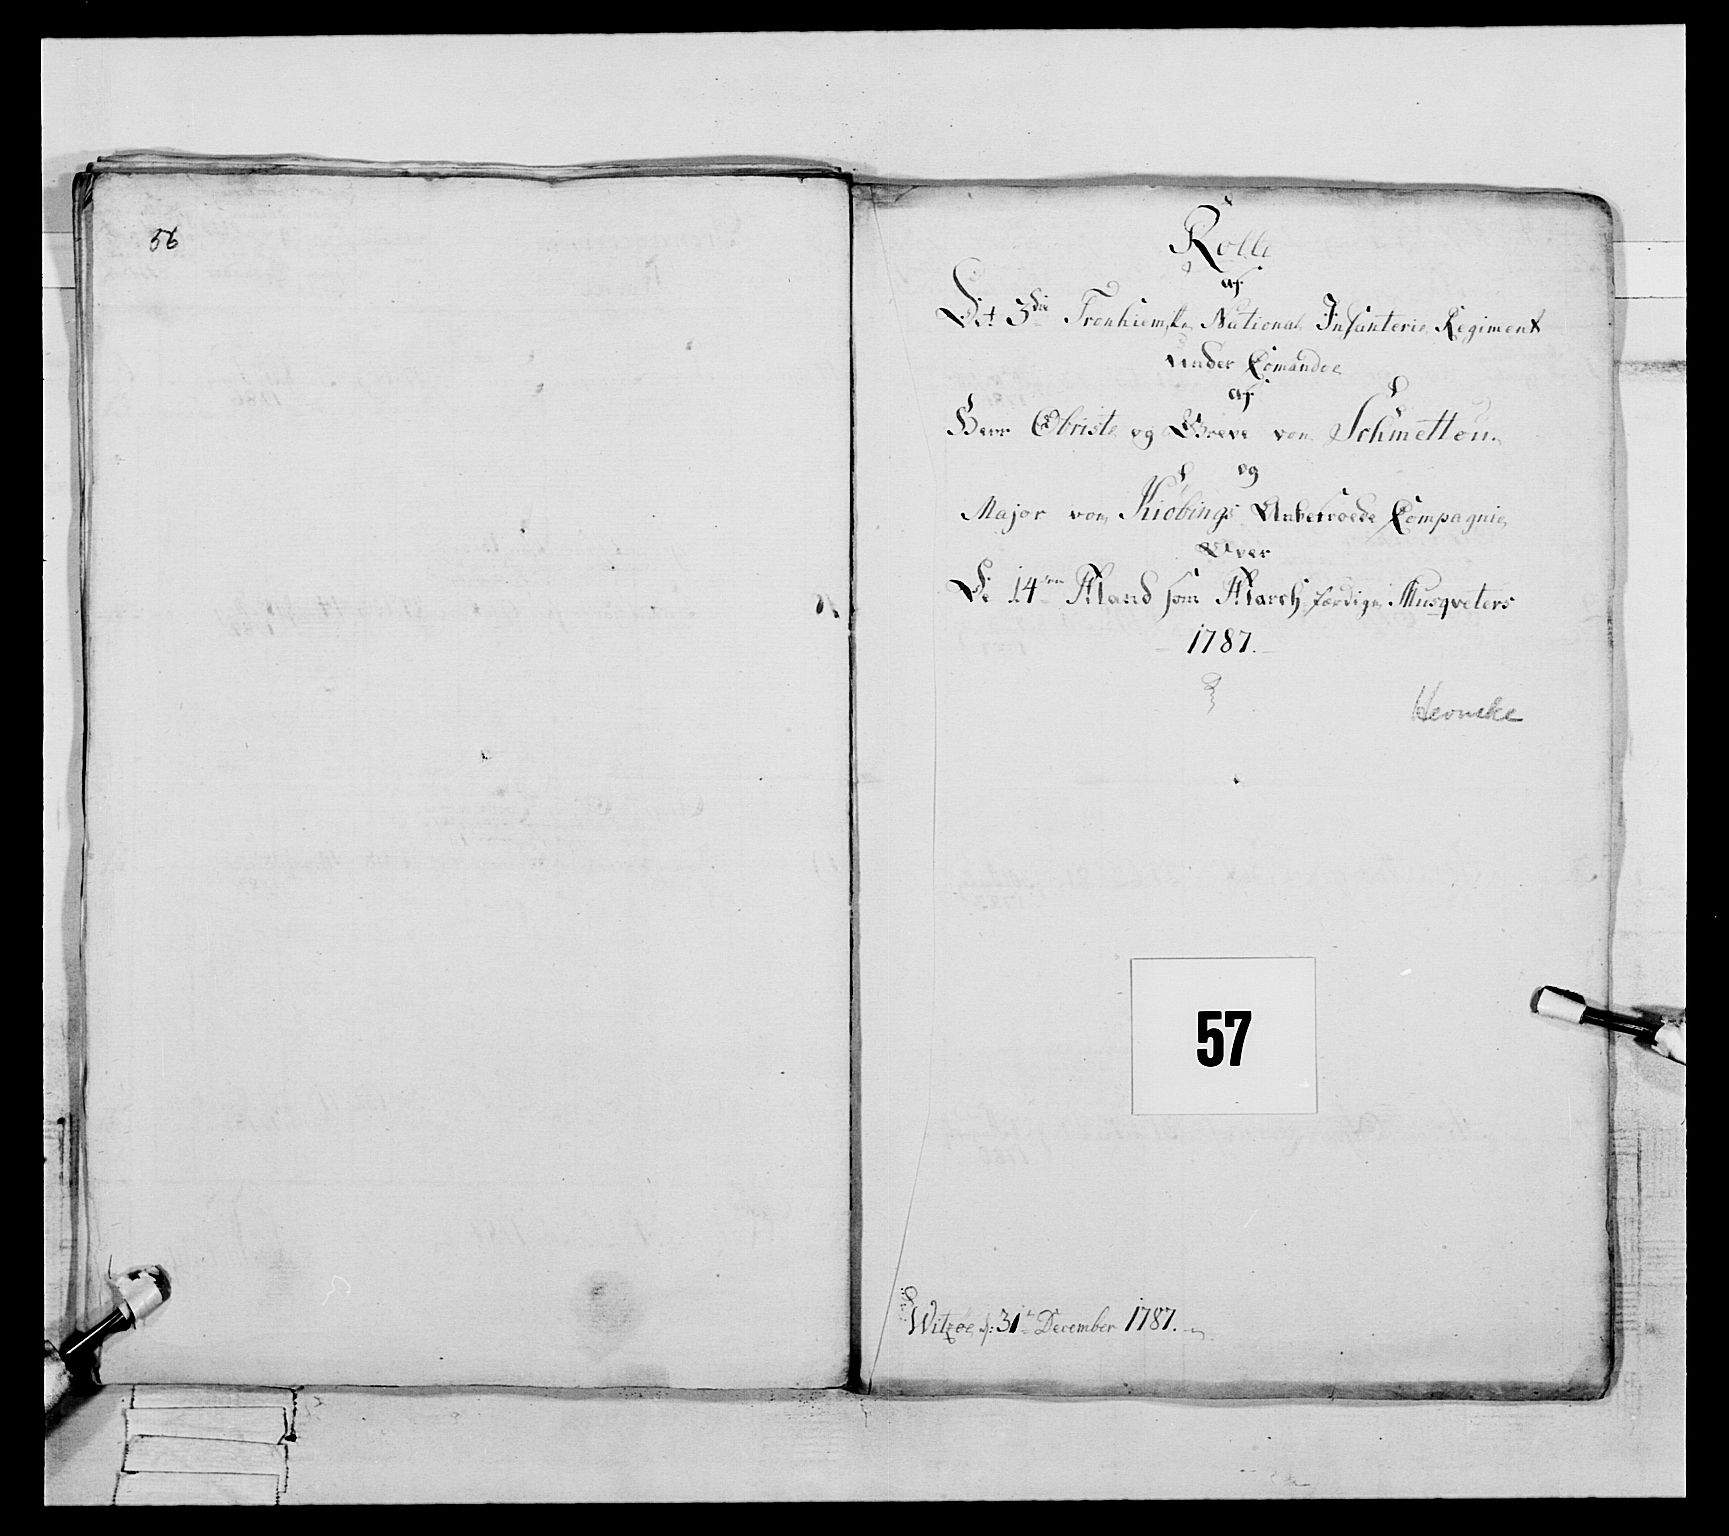 56
Rolle
af
Det 3die Tronhiemske National Infanterie Regiment
under Comandoe
af
Herr Obriste og Greve von Schmettou
og
Major von Kiöbings Anbetroede Compagnie
Over
De 14ten Mand som March færdige Musqveters
1787.
57
Witzøe d: 31te December 1787.